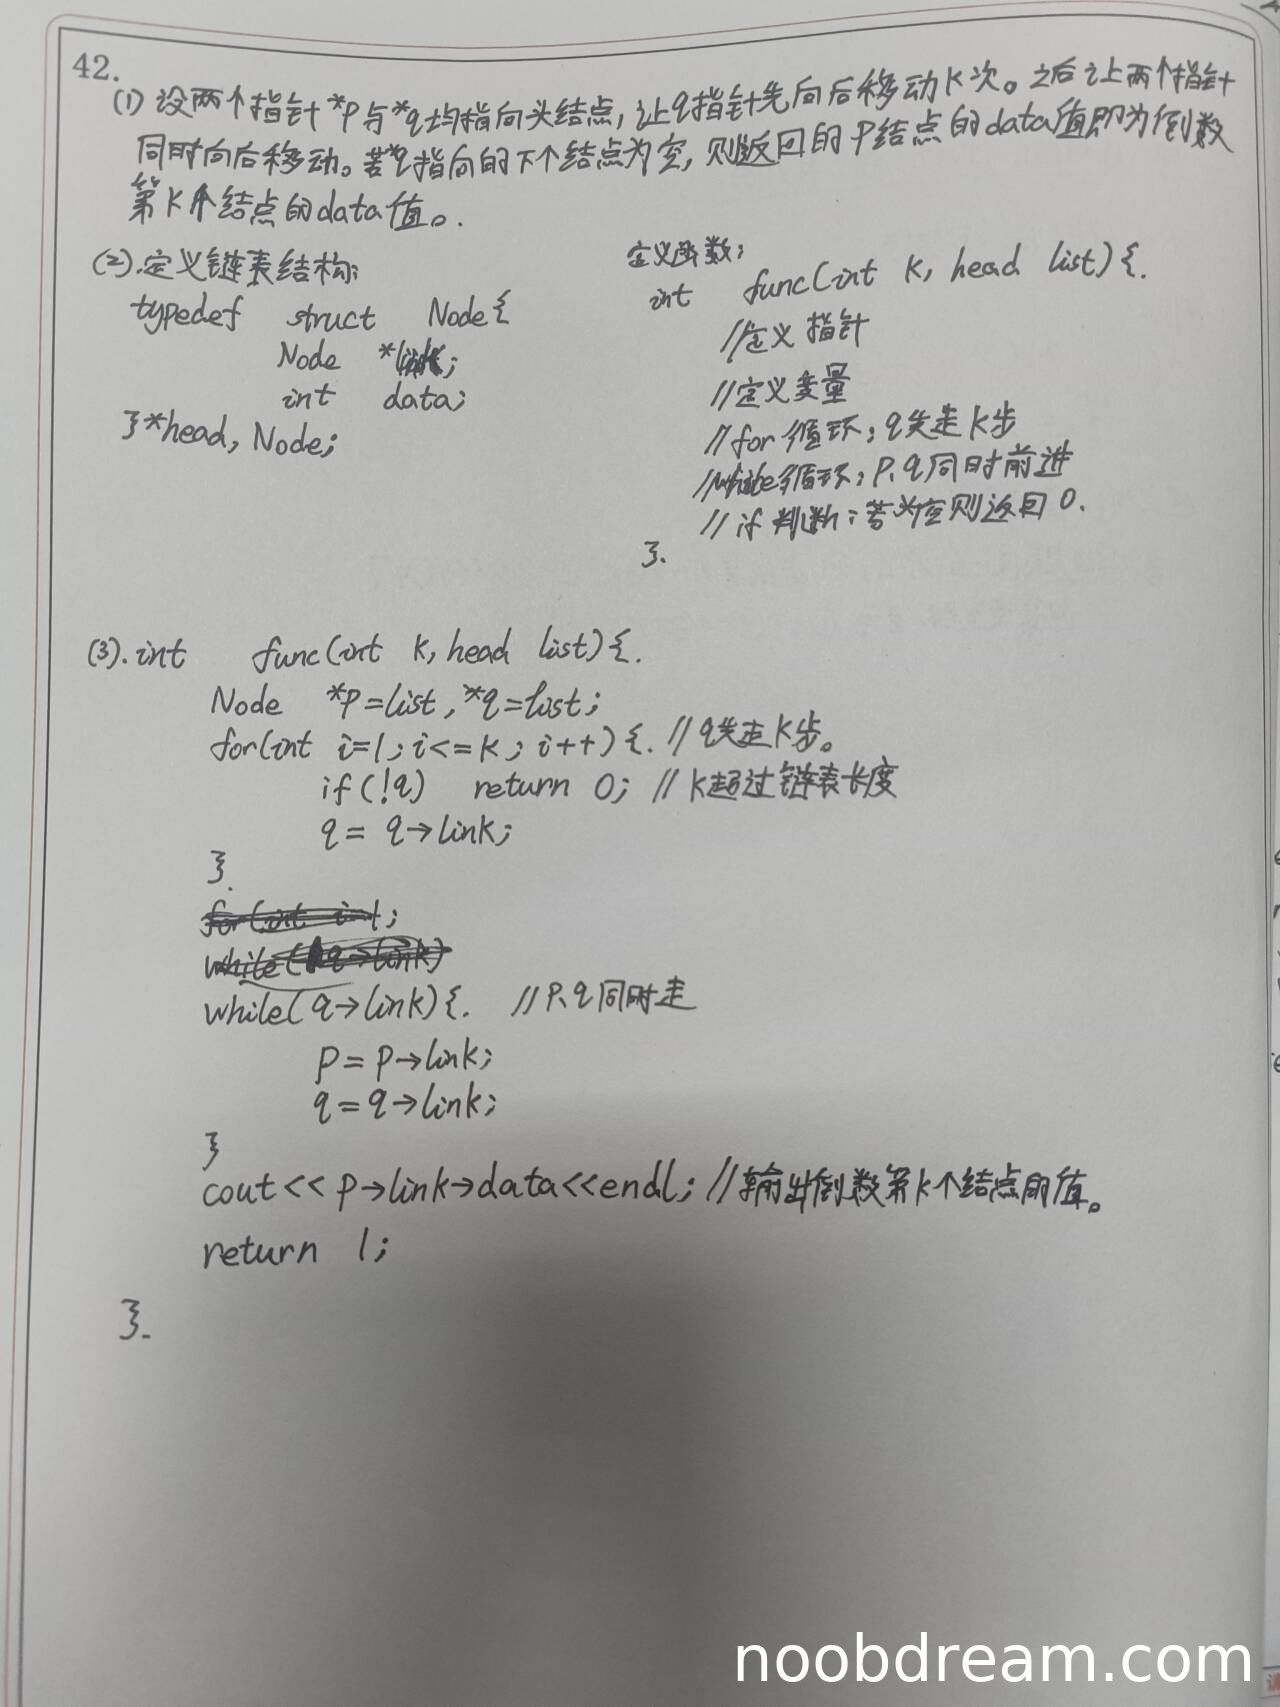 42.
(1) 设两个指针*p与*q均指向头结点，让q指针先向后移动k次。之后让两个指针
同时向后移动。若q指向的下个结点为空，则返回的p结点的data值即为倒数
第k个结点的data值。.
(2).定义链表结构:
typedef struct Node{
Node *link;
int data;
}*head, Node;
定义函数:
int func(int k, head list){.
//定义指针
//定义变量
//for循环: q先走k步
//while循环: p、q同时前进
//if判断: 若为空则返回0.
}.
(3). int func(int k, head list){.
Node *p=list, *q=list;
for(int i=1; i<=k; i++){. //q先走k步。
if(!q) return 0; //k超过链表长度
q = q->link;
}.
for(int i=1;
while(q->link)
while(q->link){. //p、q同时走
p = p->link;
q = q->link;
}
cout<< p->link->data<<endl; //输出倒数第k个结点的值。
return 1;
}.
noobdream.com